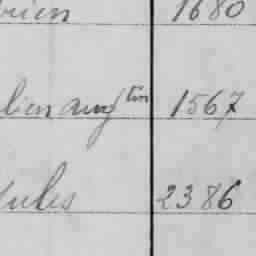 rien 1680
lien aug tin 1567
Jules 2386